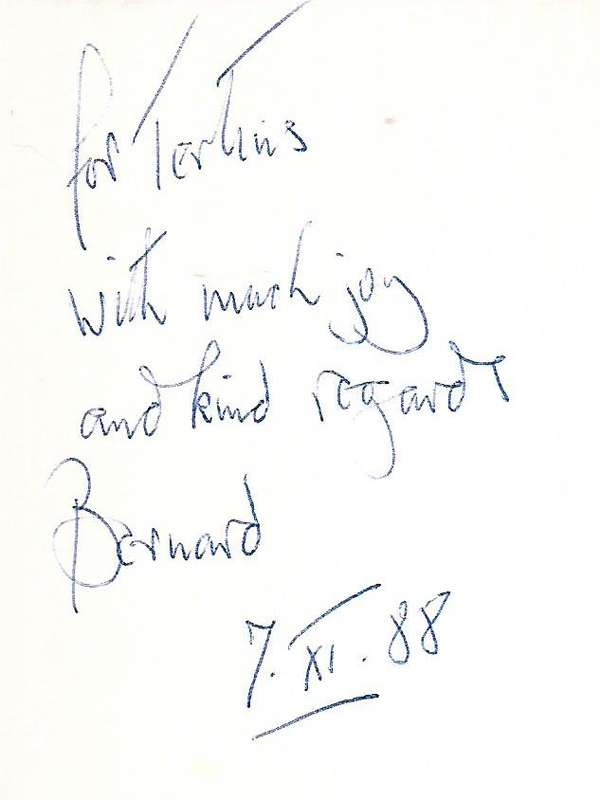 for Tertius
with much joy
and kind regards
Bernard
7. XI. 88